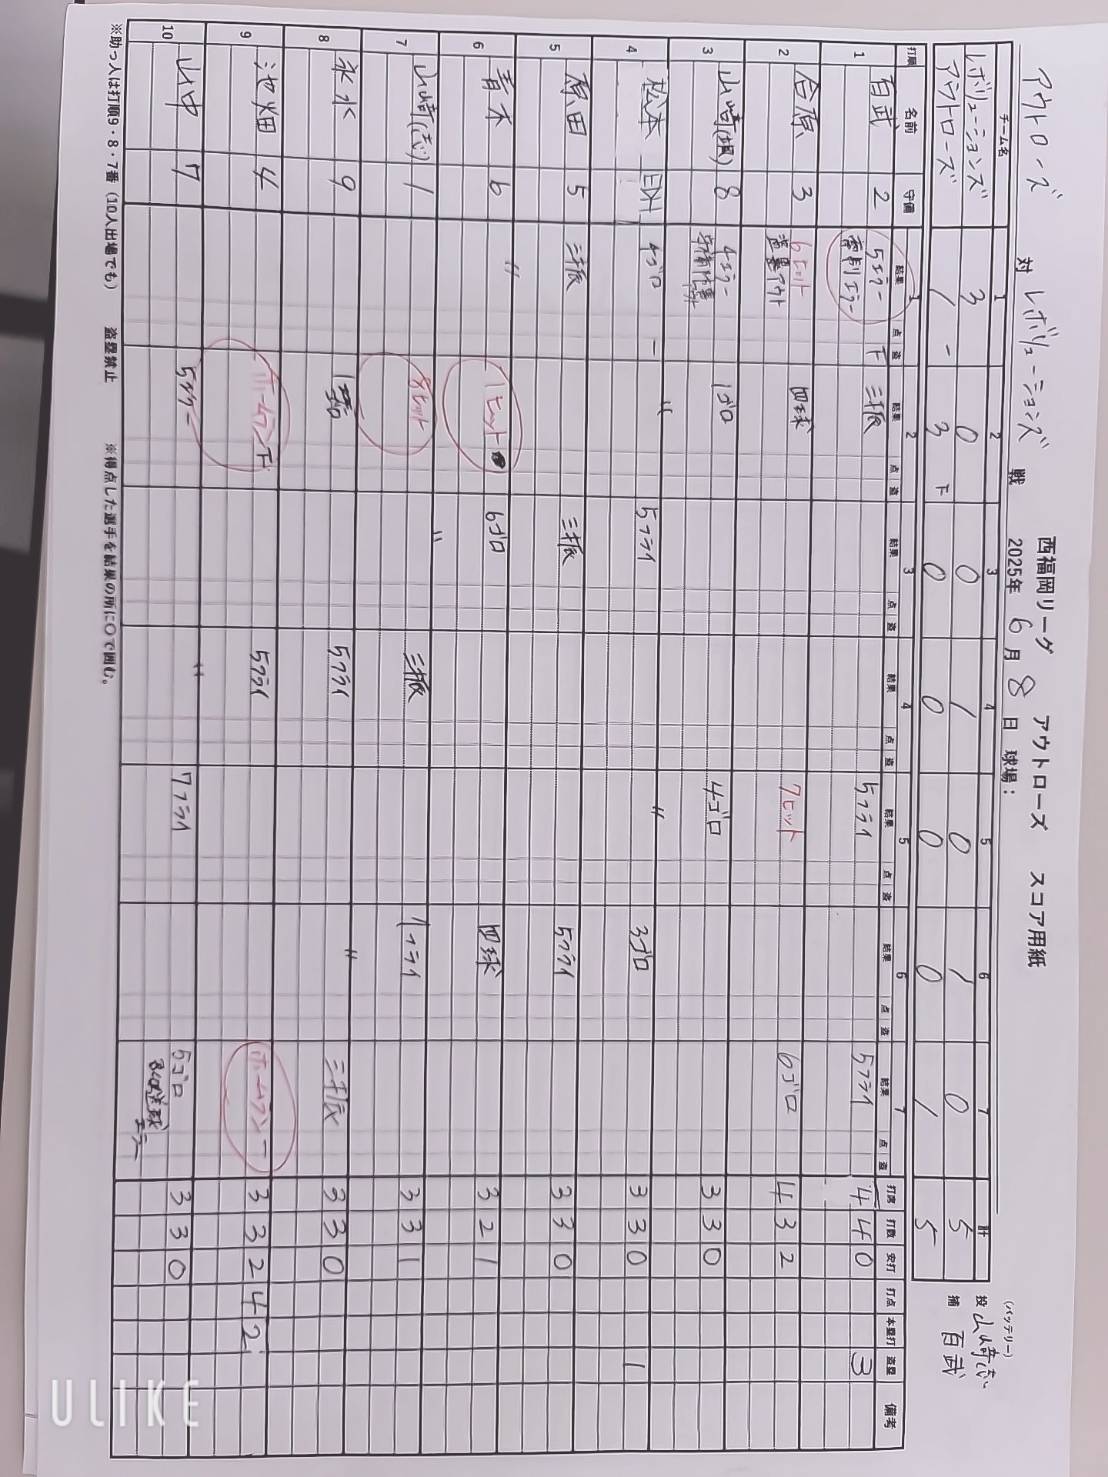 西福岡リーグ アウトローズ スコア用紙
アウトローズ 対 レボリューションズ 戦 2025年 6月 8日 球場：
(バッテリー)
投 山崎志
捕 百武
チーム名 1 2 3 4 5 6 7 計
レボリューションズ 3 0 0 1 0 1 0 5
アウトローズ 1 3 0 0 0 0 1 5
打順 名前 守備 1 結果 点 盗 2 結果 点 盗 3 結果 点 盗 4 結果 点 盗 5 結果 点 盗 6 結果 点 盗 7 結果 点 盗 打席 打数 安打 打点 本塁打 盗塁 備考
1 百武 2 5エラー 下 三振 5フライ 5フライ 4 4 0 3
2 合原 3 6ヒット 盗塁アウト 四球 7ヒット 6ゴロ 4 3 2
3 山崎 8 4エラー 1ゴロ 4ゴロ 3 3 0
4 松本 EDH 4ゴロ 一 5フライ 3ゴロ 3 3 0 1
5 原田 5 三振 三振 5フライ 3 3 0
6 青木 6 1ヒット 6ゴロ 四球 3 2 1
7 山崎(志) 1 8ヒット 三振 1フライ 3 3 1
8 永水 9 1ゴロ 5フライ 三振 3 3 0
9 池畑 4 ホームラン 下 5フライ ホームラン 一 3 3 2 4 2
10 山中 7 5フライ 7フライ 5ゴロ 送球エラー 3 3 0
※助っ人は打順9・8・7番（10人出場でも） 盗塁禁止 ※得点した選手を結果の所に○で囲む。
ULIKE